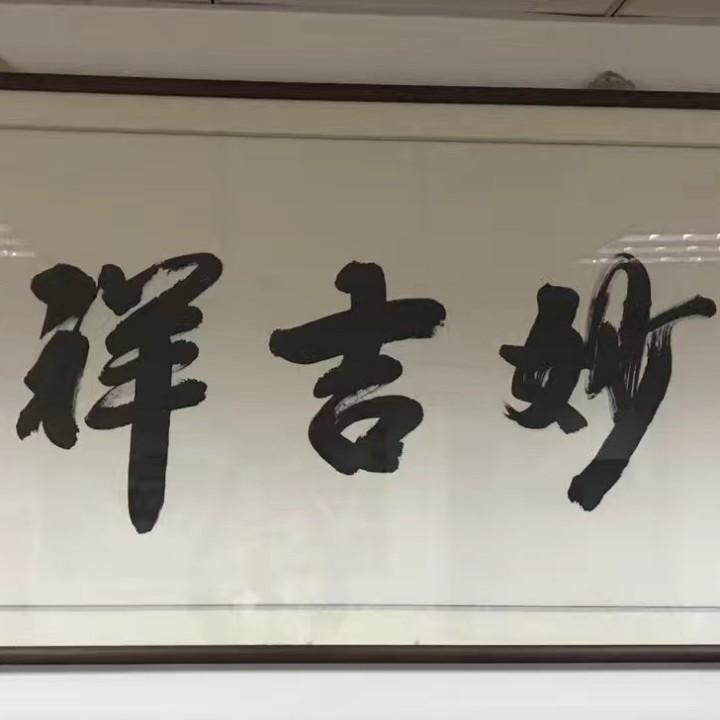 妙吉祥